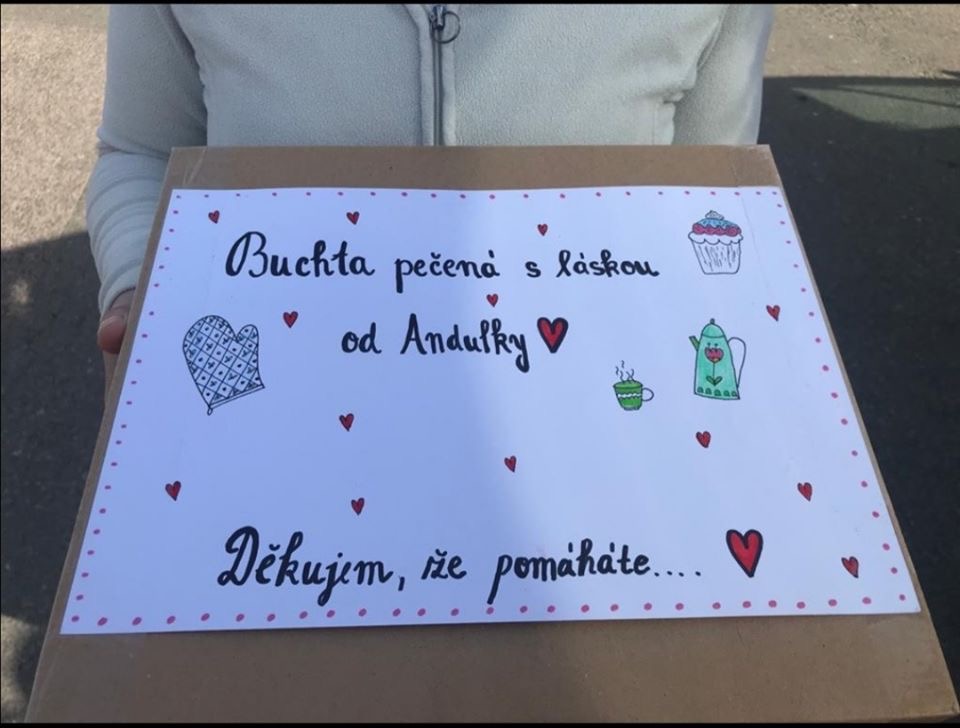 Buchta pečená s láskou
od Andulky
Děkujem, že pomáháte....